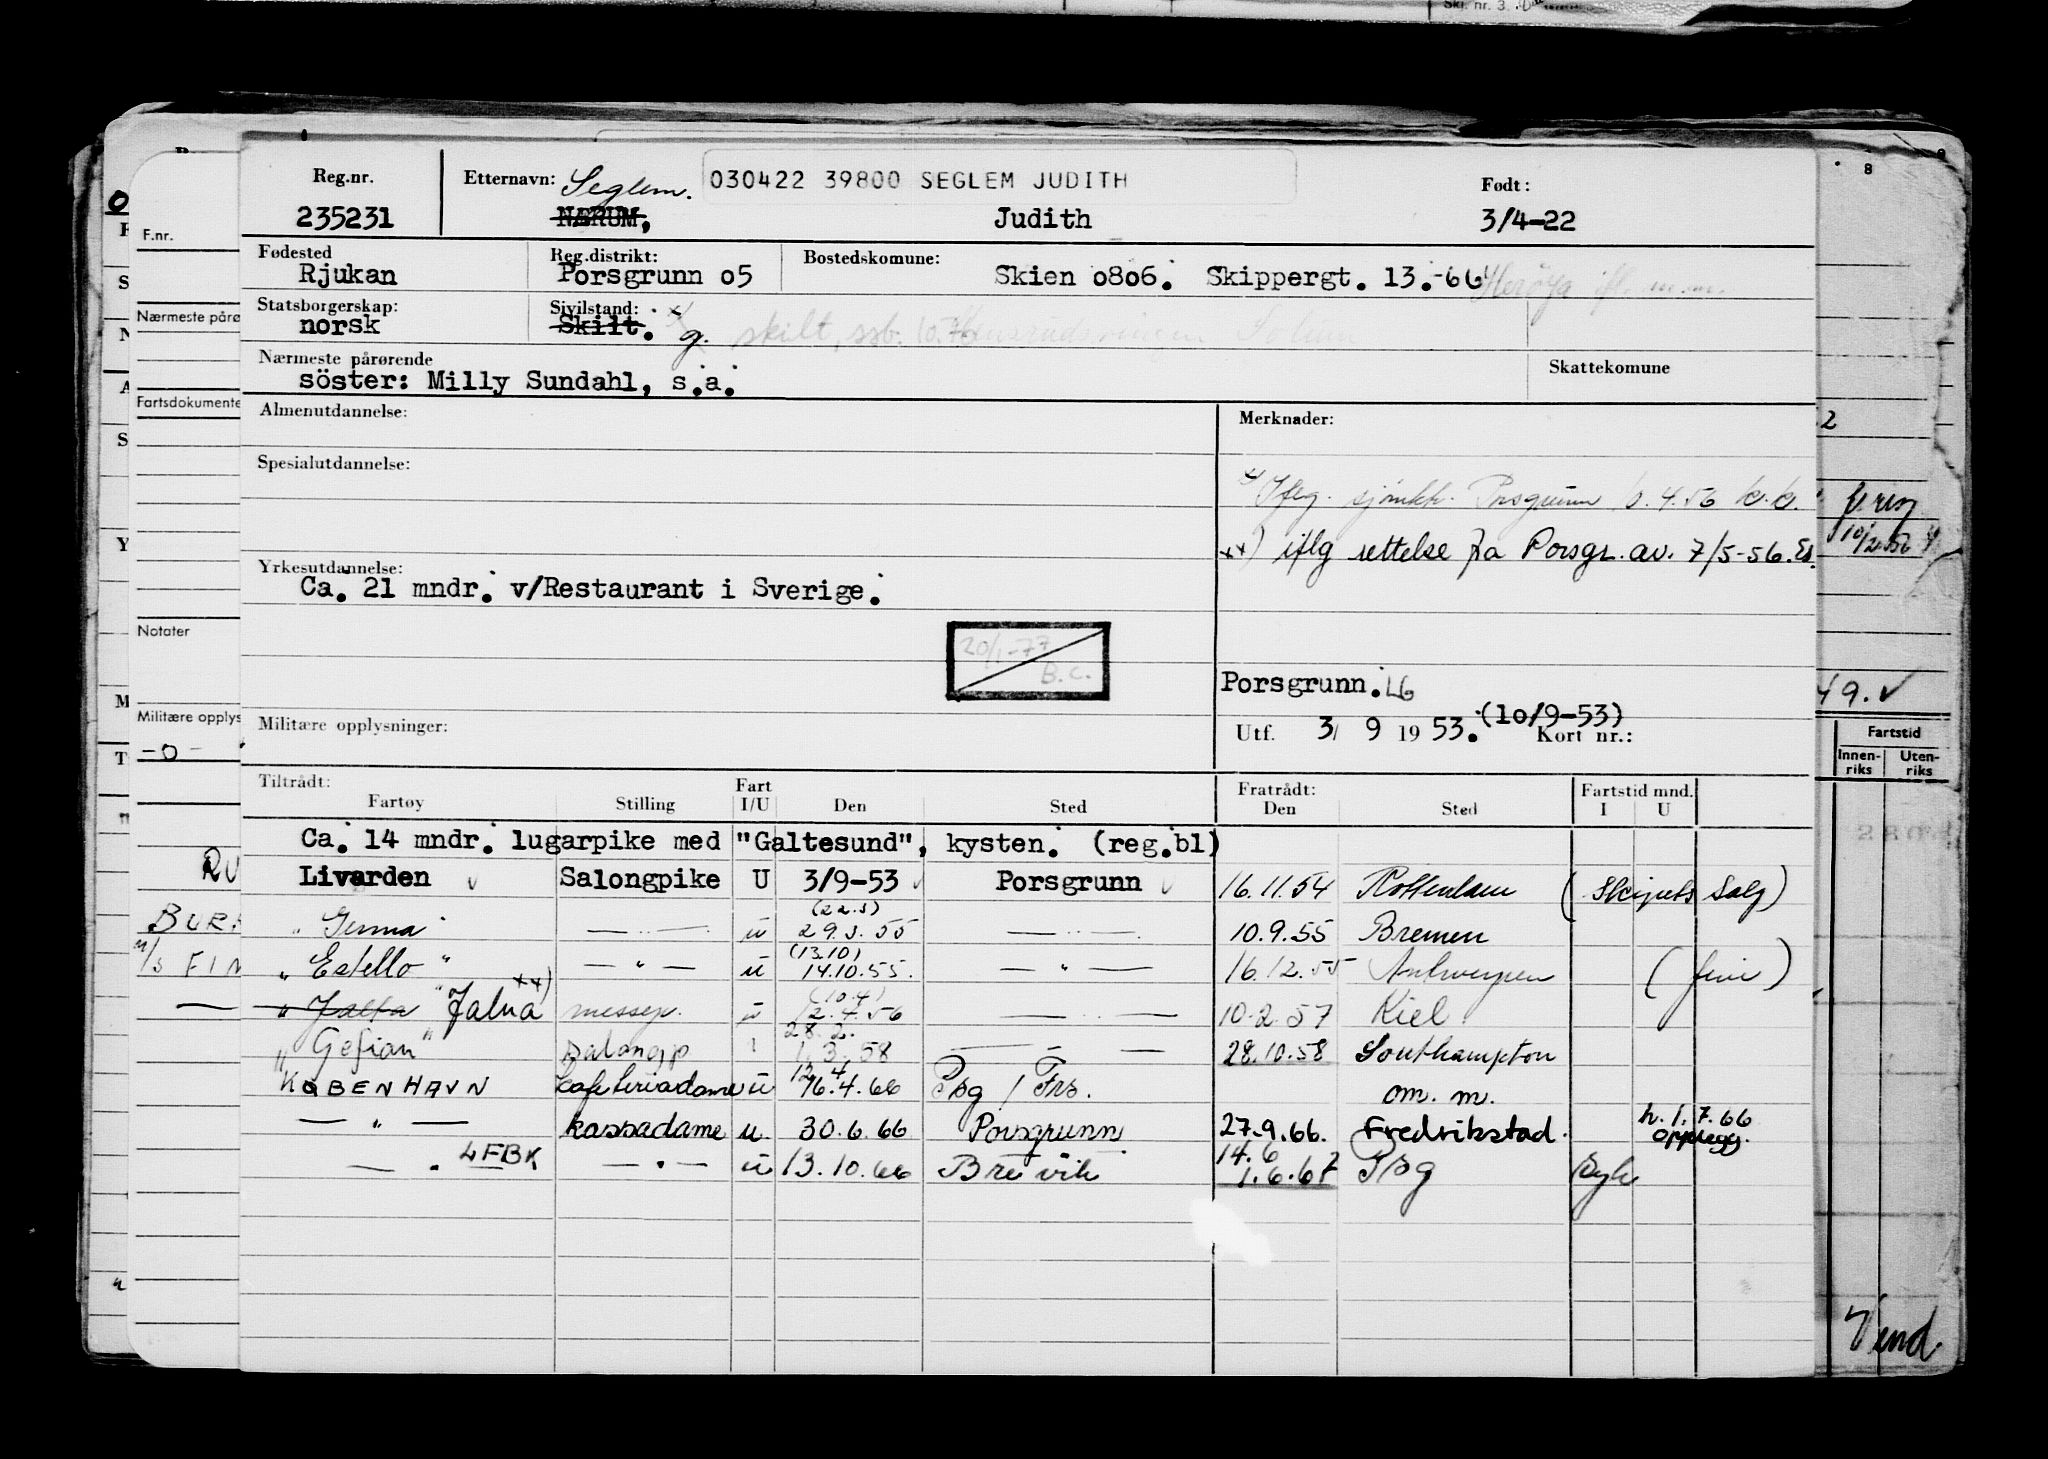 Skj. nr. 3.
Reg.nr. Etternavn: Seglem. 030422 39800 SEGLEM JUDITH Født:
235231 NÆRUM, Judith 3/4-22
Fødested Reg.distrikt: Bostedskomune:
Rjukan Porsgrunn o5 Skien o8o6. Skippergt. 13.-66 Herøya
Statsborgerskap: Sivilstand:
norsk Skilt. g. skilt,
Nærmeste pårørende Skattekomune
söster: Milly Sundahl, s.a.
Almenutdannelse: Merknader:
Spesialutdannelse:
x) Iflg. sjömkk. Porsgrunn 10.4.56 k.k.
xx) iflg rettelse fra Porsgr. av. 7/5-56. Es.
Yrkesutdannelse:
Ca. 21 mndr. v/Restaurant i Sverige.
20/1-77
B.C.
Porsgrunn. LG
Militære opplysninger: Utf. 3/ 9 1953. (10/9-53) Kort nr.:
Tiltrådt: Fart Fratrådt: Fartstid mnd.
Fartøy Stilling I/U Den Sted Den Sted I U
Ca. 14 mndr. lugarpike med "Galtesund", kysten. (reg.bl)
Livarden Salongpike U 3/9-53 Porsgrunn 16.11.54 Rotterdam (Skipets Salg)
(22.3)
" Gunna — " — u 29.3.55 — " — 10.9.55 Bremen
(13.10)
" Estello " — " — u 14.10.55. — " — 16.12.55 Antwerpen (ferie)
(10.4)
" Jalta " Jalna xx) messep. u 12.4.56 — " — 10.2.57 Kiel
28.2.
" Gefion " salongp 1.3.58 — " — 28.10.58 Southampton
12.4
KØBENHAVN kafeteriadame u 16.4.66 Psg / Frs. om. m.
— " — kassadame u. 30.6.66 Porsgrunn 27.9.66. Fredrikstad. h. 1.7.66 opplegg.
14.6
— " — LFBK — " — u 13.10.66 Brevik 1.6.67 Psg Syk
F.nr.
Nærmeste pårø
Fartsdokumente
Notater
Militære opplys
-0-
M/S FIN
8
49. ✓
Fartstid
Innen-riks Uten-riks
Vend